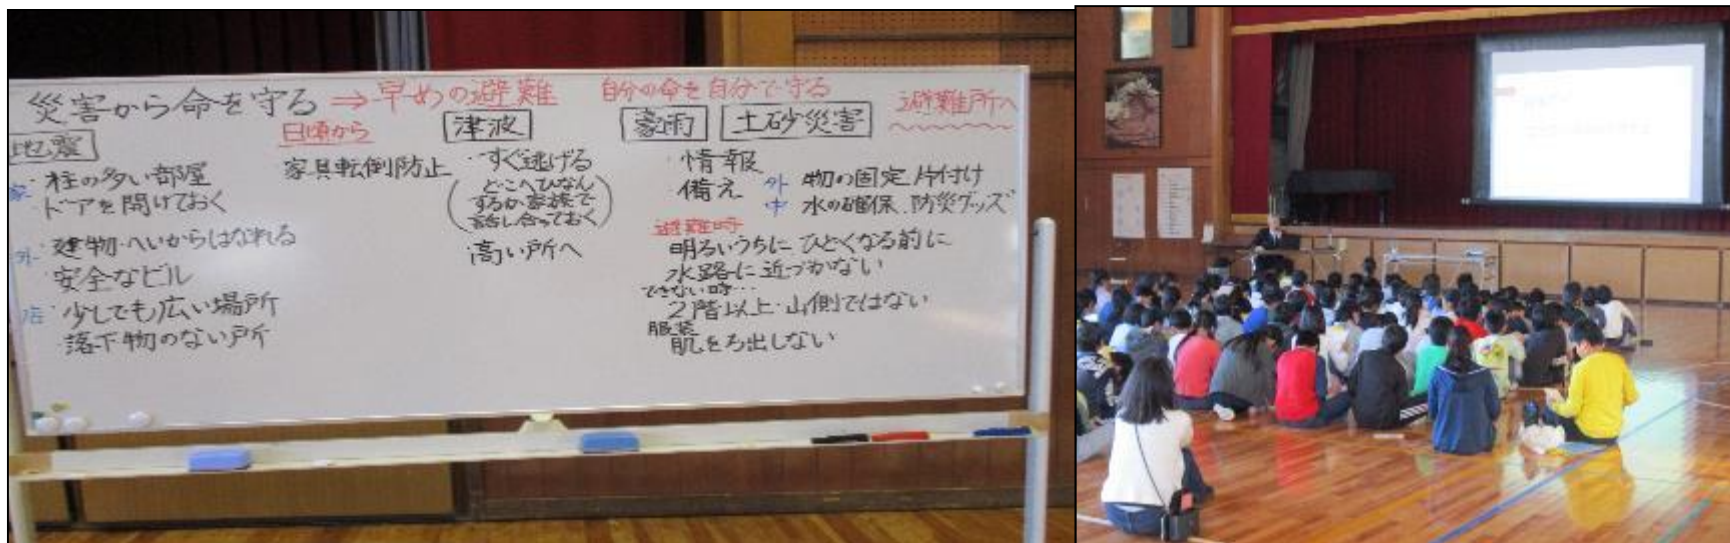 災害から命を守る ⇒ 早めの避難 自分の命を自分で守る 避難所へ
地震
家・柱の多い部屋
ドアを開けておく
外・建物・へいからはなれる
安全なビル
店・少しでも広い場所
落下物のない所
日頃から
家具転倒防止
津波
・すぐ逃げる
(どこへひなん
するか家族で
話し合っておく)
高い所へ
豪雨 土砂災害
・情報
備え 外 物の固定 片付け
中 水の確保、防災グッズ
避難時
明るいうちに ひどくなる前に
水路に近づかない
できない時…
2階以上・山側ではない
服装
肌をろ出しない